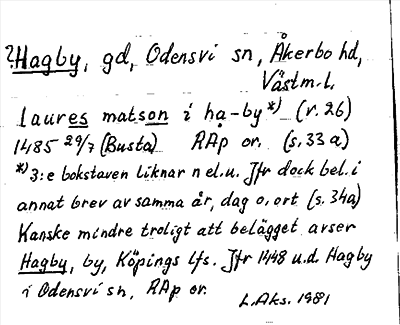 ?Hagby, gd, Odensvi sn, Åkerbo hd,
Västm. l.
laures matson i ha-by *) (r. 26)
1485 29/7 (Busta) RAp or. (s. 33 a)
*) 3:e bokstaven liknar n el. u. Jfr dock bel. i
annat brev av samma år, dag o. ort (s. 34a)
Kanske mindre troligt att belägget avser
Hagby, by, Köpings lfs. Jfr 1448 u.d. Hagby
i Odensvi sn, RAp or.
L.Aks. 1981